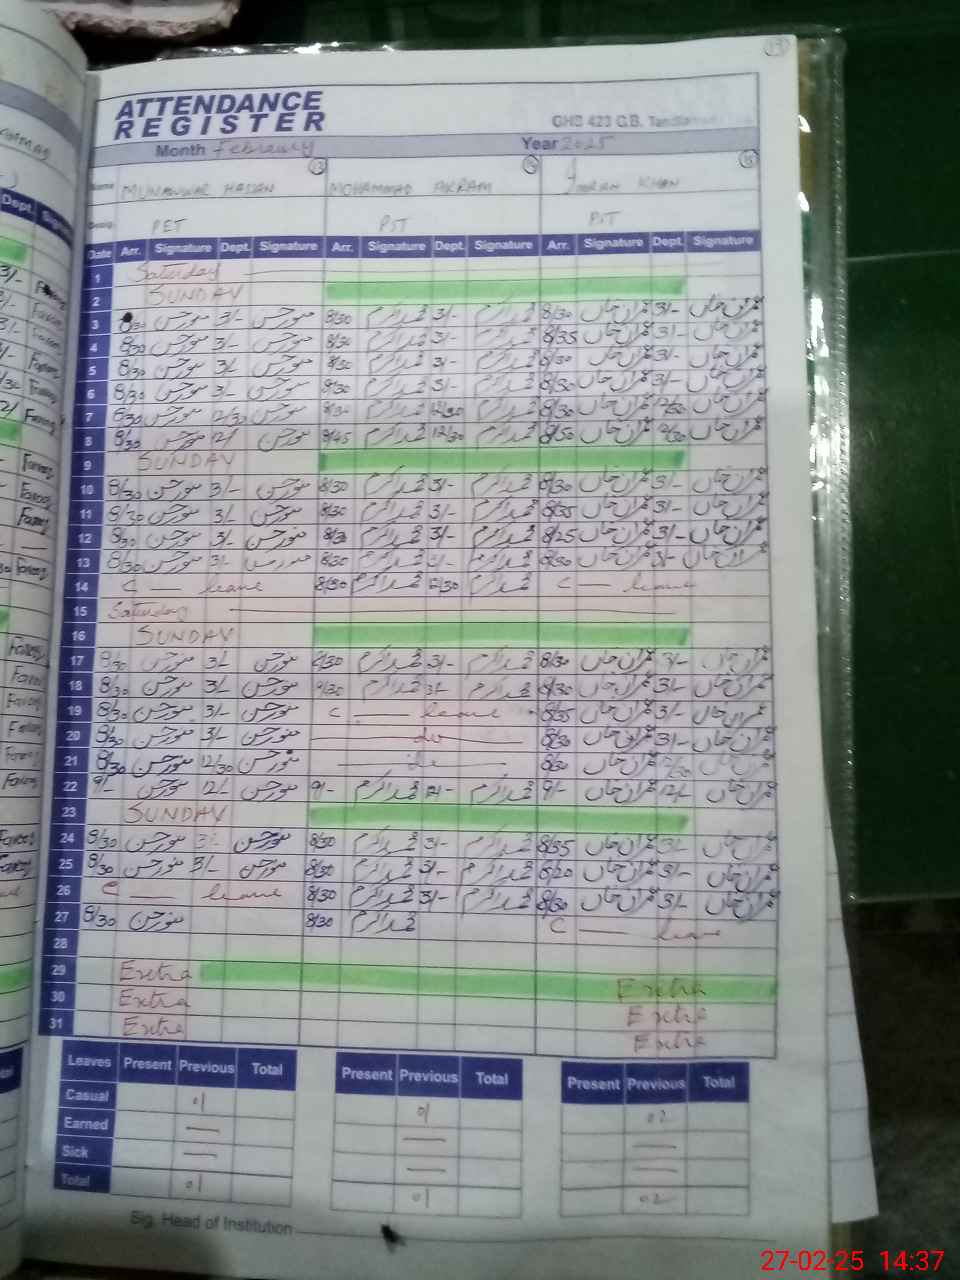 ATTENDANCE
REGISTER
GHS 423 G.B.
Month February Year 2025
13 14 15
Name MUNAWWAR HASSAN MOHAMMAD AKRAM IMRAN KHAN
Desig. PET PST PST
Date Arr. Signature Dept. Signature Arr. Signature Dept. Signature Arr. Signature Dept. Signature
1 Saturday
2 SUNDAY
3 8/30 منور حسن 3/- منور حسن 8/30 محمد اکرم 3/- محمد اکرم 8/30 عمران خاں 3/- عمران خاں
4 8/30 منور حسن 3/- منور حسن 8/30 محمد اکرم 3/- محمد اکرم 8/35 عمران خاں 3/- عمران خاں
5 8/30 منور حسن 3/ منور حسن 8/30 محمد اکرم 3/- محمد اکرم 8/30 عمران خاں 3/- عمران خاں
6 8/30 منور حسن 3/- منور حسن 8/30 محمد اکرم 3/- محمد اکرم 8/30 عمران خاں 3/- عمران خاں
7 8/30 منور حسن 12/30 منور حسن 8/30 محمد اکرم 12/30 محمد اکرم 8/30 عمران خاں 12/30 عمران خاں
8 8/30 منور حسن 12/ منور حسن 8/45 محمد اکرم 12/30 محمد اکرم 8/50 عمران خاں 12/30 عمران خاں
9 SUNDAY
10 8/30 منور حسن 3/- منور حسن 8/30 محمد اکرم 3/- محمد اکرم 8/30 عمران خاں 3/- عمران خاں
11 8/30 منور حسن 3/- منور حسن 8/30 محمد اکرم 3/- محمد اکرم 8/35 عمران خاں 3/- عمران خاں
12 8/30 منور حسن 3/- منور حسن 8/30 محمد اکرم 3/- محمد اکرم 8/25 عمران خاں 3/- عمران خاں
13 8/30 منور حسن 3/- منور حسن 8/30 محمد اکرم 3/- محمد اکرم 8/30 عمران خاں 3/- عمران خاں
14 C — leave 8/30 محمد اکرم 12/30 محمد اکرم C — leave
15 Saturday
16 SUNDAY
17 8/30 منور حسن 3/ منور حسن 8/30 محمد اکرم 3/- محمد اکرم 8/30 عمران خاں 3/- عمران خاں
18 8/30 منور حسن 3/- منور حسن 8/30 محمد اکرم 3/- محمد اکرم 8/30 عمران خاں 3/- عمران خاں
19 8/30 منور حسن 3/- منور حسن C — leave 8/35 عمران خاں 3/- عمران خاں
20 8/30 منور حسن 3/- منور حسن — do — 8/30 عمران خاں 3/- عمران خاں
21 8/30 منور حسن 12/30 منور حسن — do — 8/30 عمران خاں 12/30 عمران خاں
22 9/- منور حسن 12/ منور حسن 9/- محمد اکرم 12/- محمد اکرم 9/- عمران خاں 12/- عمران خاں
23 SUNDAY
24 8/30 منور حسن 3/- منور حسن 8/30 محمد اکرم 3/- محمد اکرم 8/35 عمران خاں 3/- عمران خاں
25 8/30 منور حسن 3/- منور حسن 8/30 محمد اکرم 3/- محمد اکرم 8/20 عمران خاں 3/- عمران خاں
26 C — leave 8/30 محمد اکرم 3/- محمد اکرم 8/30 عمران خاں 3/- عمران خاں
27 8/30 منور حسن 8/30 محمد اکرم C — leave
28
29 Extra Extra
30 Extra Extra
31 Extra Extra
Leaves Present Previous Total Present Previous Total Present Previous Total
Casual 01 01 02
Earned — — —
Sick — — —
Total 01 01 02
Sig. Head of Institution
27-02-25 14:37